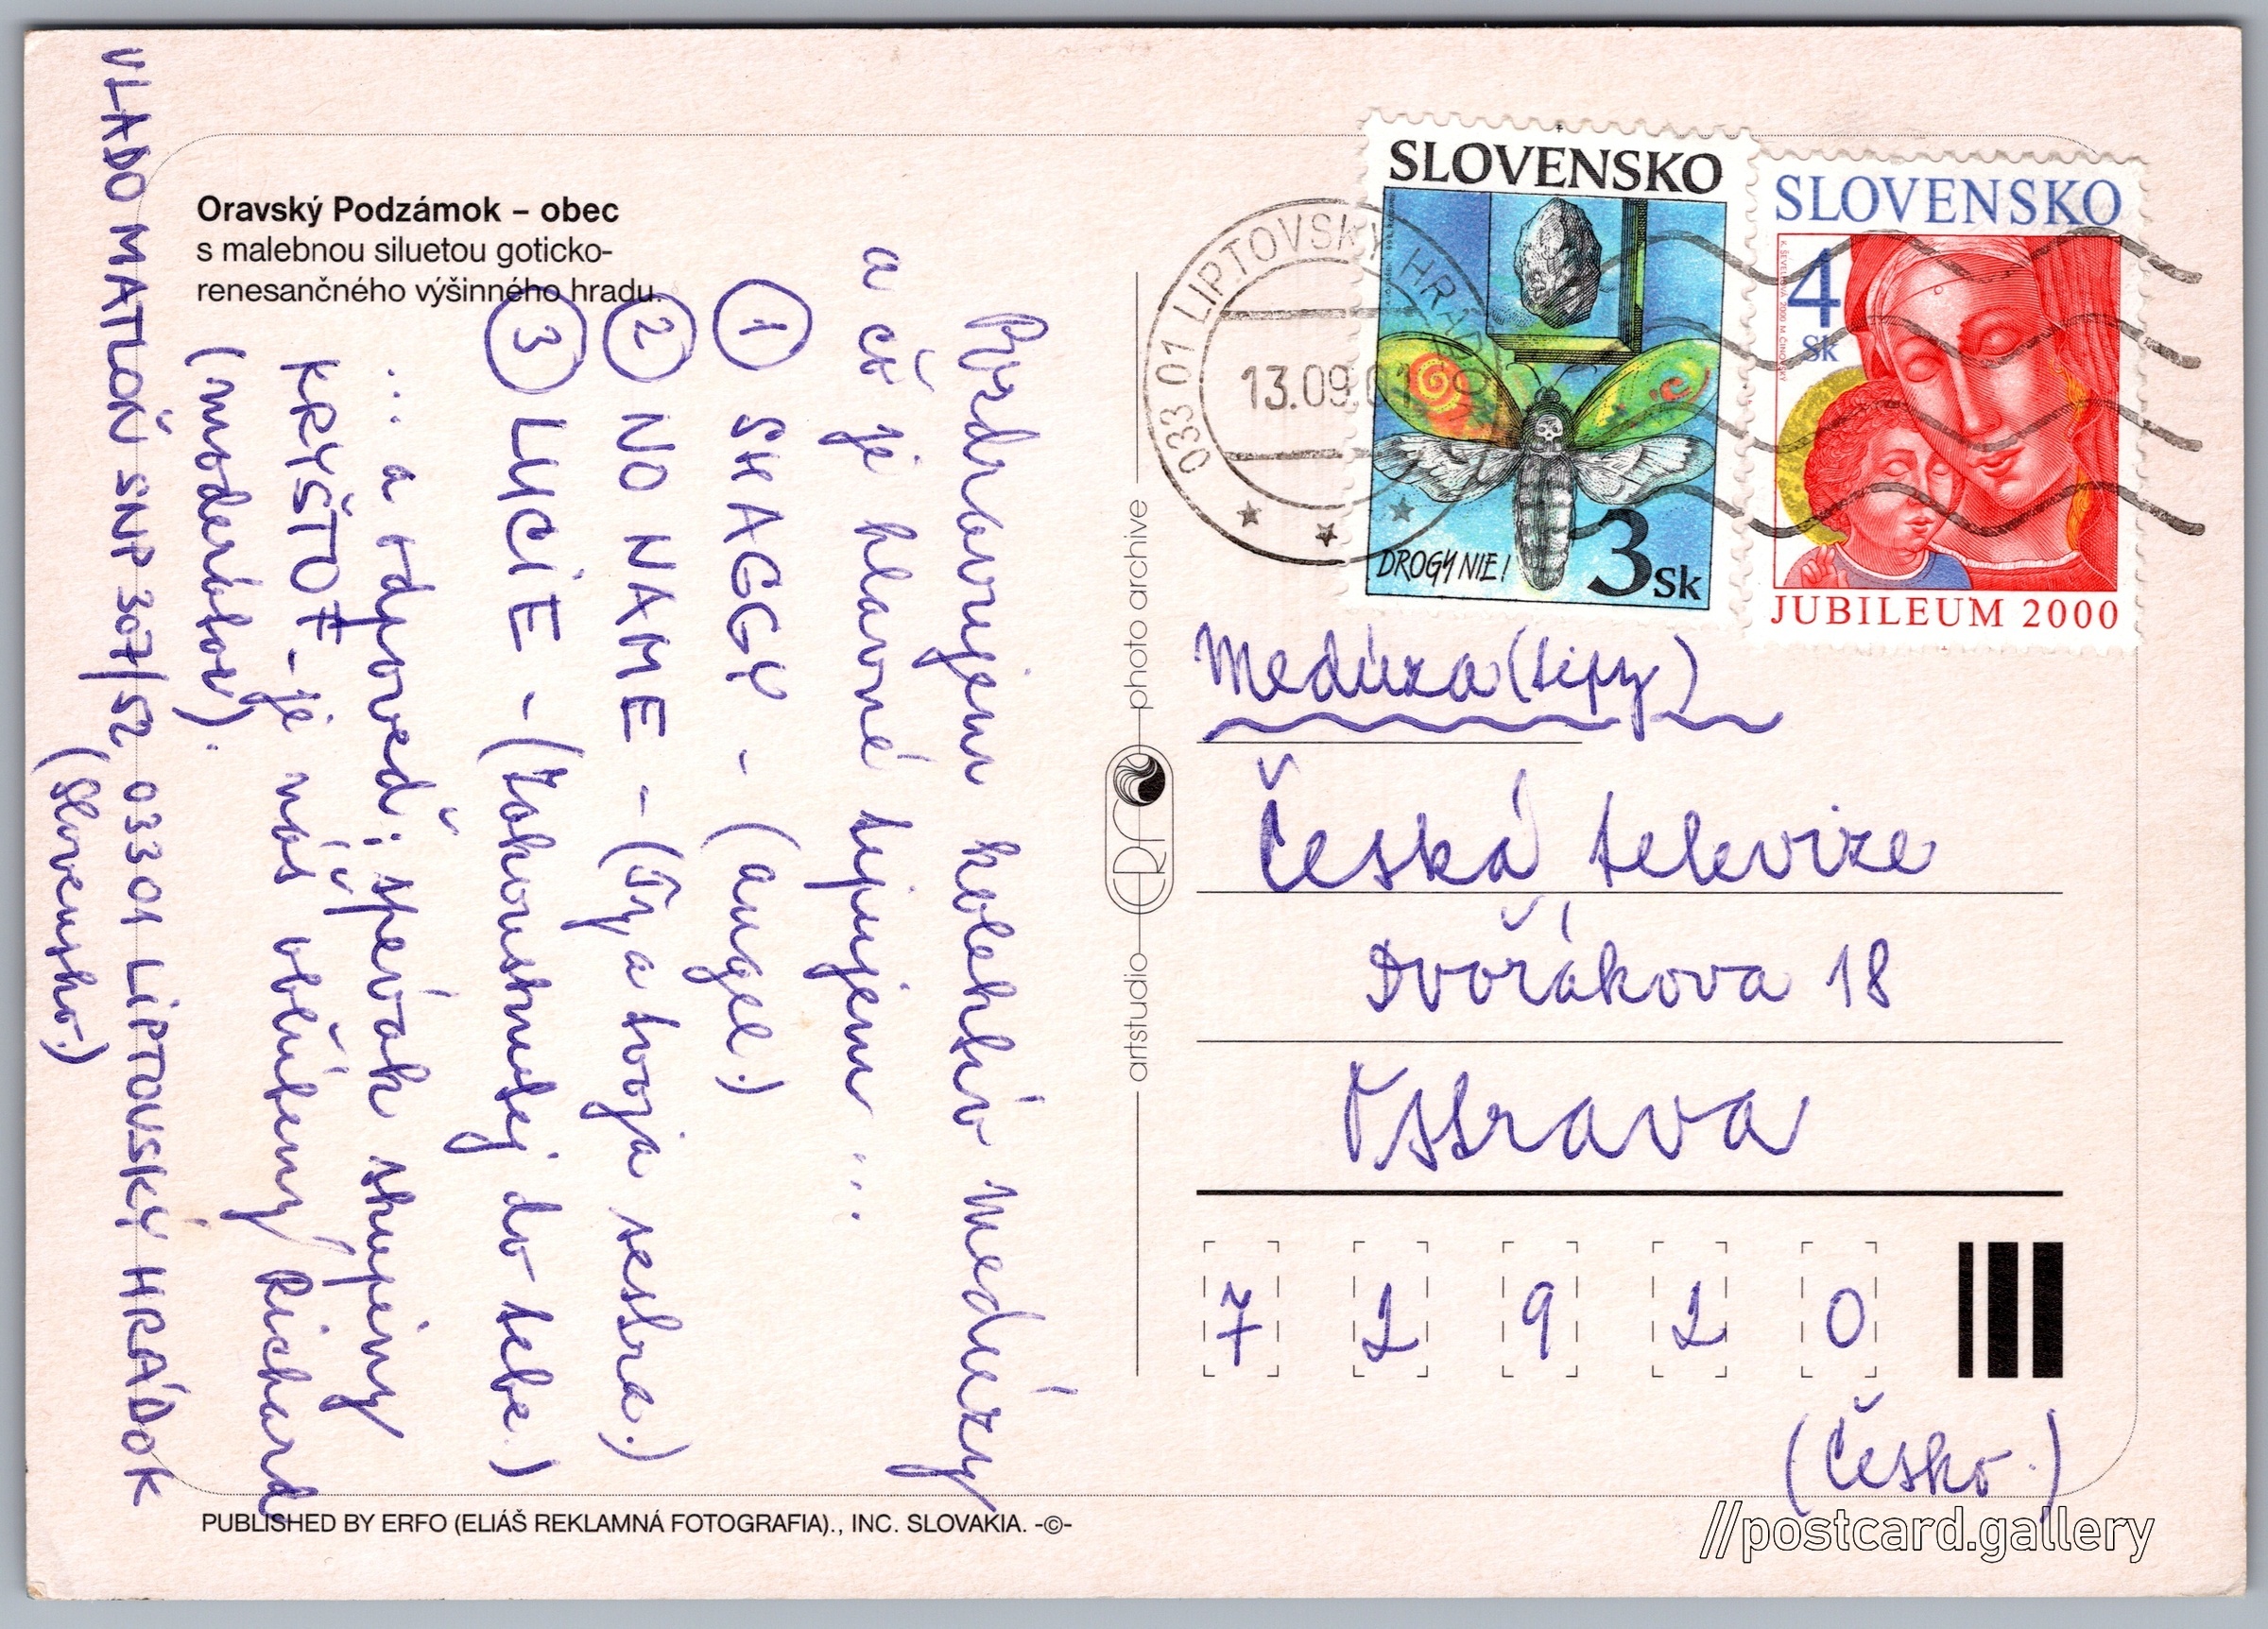 Oravský Podzámok – obec
s malebnou siluetou goticko-
renesančného výšinného hradu.
Pozdravujem kolektív medúzy
a čo je hlavné tipujem ...
① SHAGGY - (angel.)
② NO NAME - (Ty a tvoja sestra.)
③ LUCIE - (Zakousnutej do tebe.)
... a odpoveď: spevák skupiny
KRYŠTOF - je náš obľúbený Richard
(moderátor).
VLADO MATLOŇ SNP 307/52 033 01 LIPTOVSKÝ HRÁDOK
(Slovensko.)
PUBLISHED BY ERFO (ELIÁŠ REKLAMNÁ FOTOGRAFIA)., INC. SLOVAKIA. -©-
artstudio ERFO photo archive
033 01 LIPTOVSKÝ HRÁDOK
13.09.01
SLOVENSKO
DROGY NIE!
3 Sk
SLOVENSKO
4
Sk
JUBILEUM 2000
Medúza (tipy)
Česká televize
Dvořákova 18
Ostrava
7 2 9 2 0
(Česko.)
//postcard.gallery